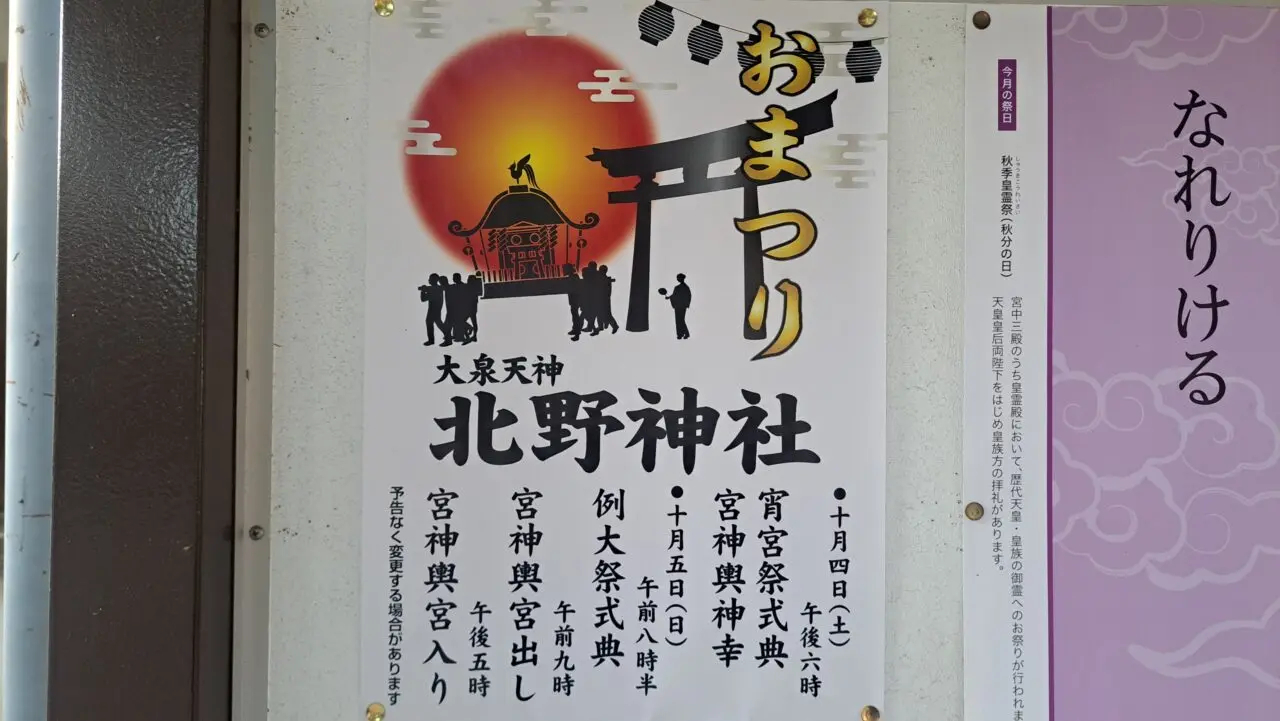 おまつり
大泉天神
北野神社
●十月四日(土)
午後六時
宵宮祭式典
宮神輿神幸
●十月五日(日)
午前八時半
例大祭式典
午前九時
宮神輿宮出し
午後五時
宮神輿宮入り
予告なく変更する場合があります
なれりける
今月の祭日
秋季皇霊祭(秋分の日)
しゅうきこうれいさい
宮中三殿のうち皇霊殿において、歴代天皇・皇族の御霊へのお祭りが行われま
天皇皇后両陛下をはじめ皇族方の拝礼があります。